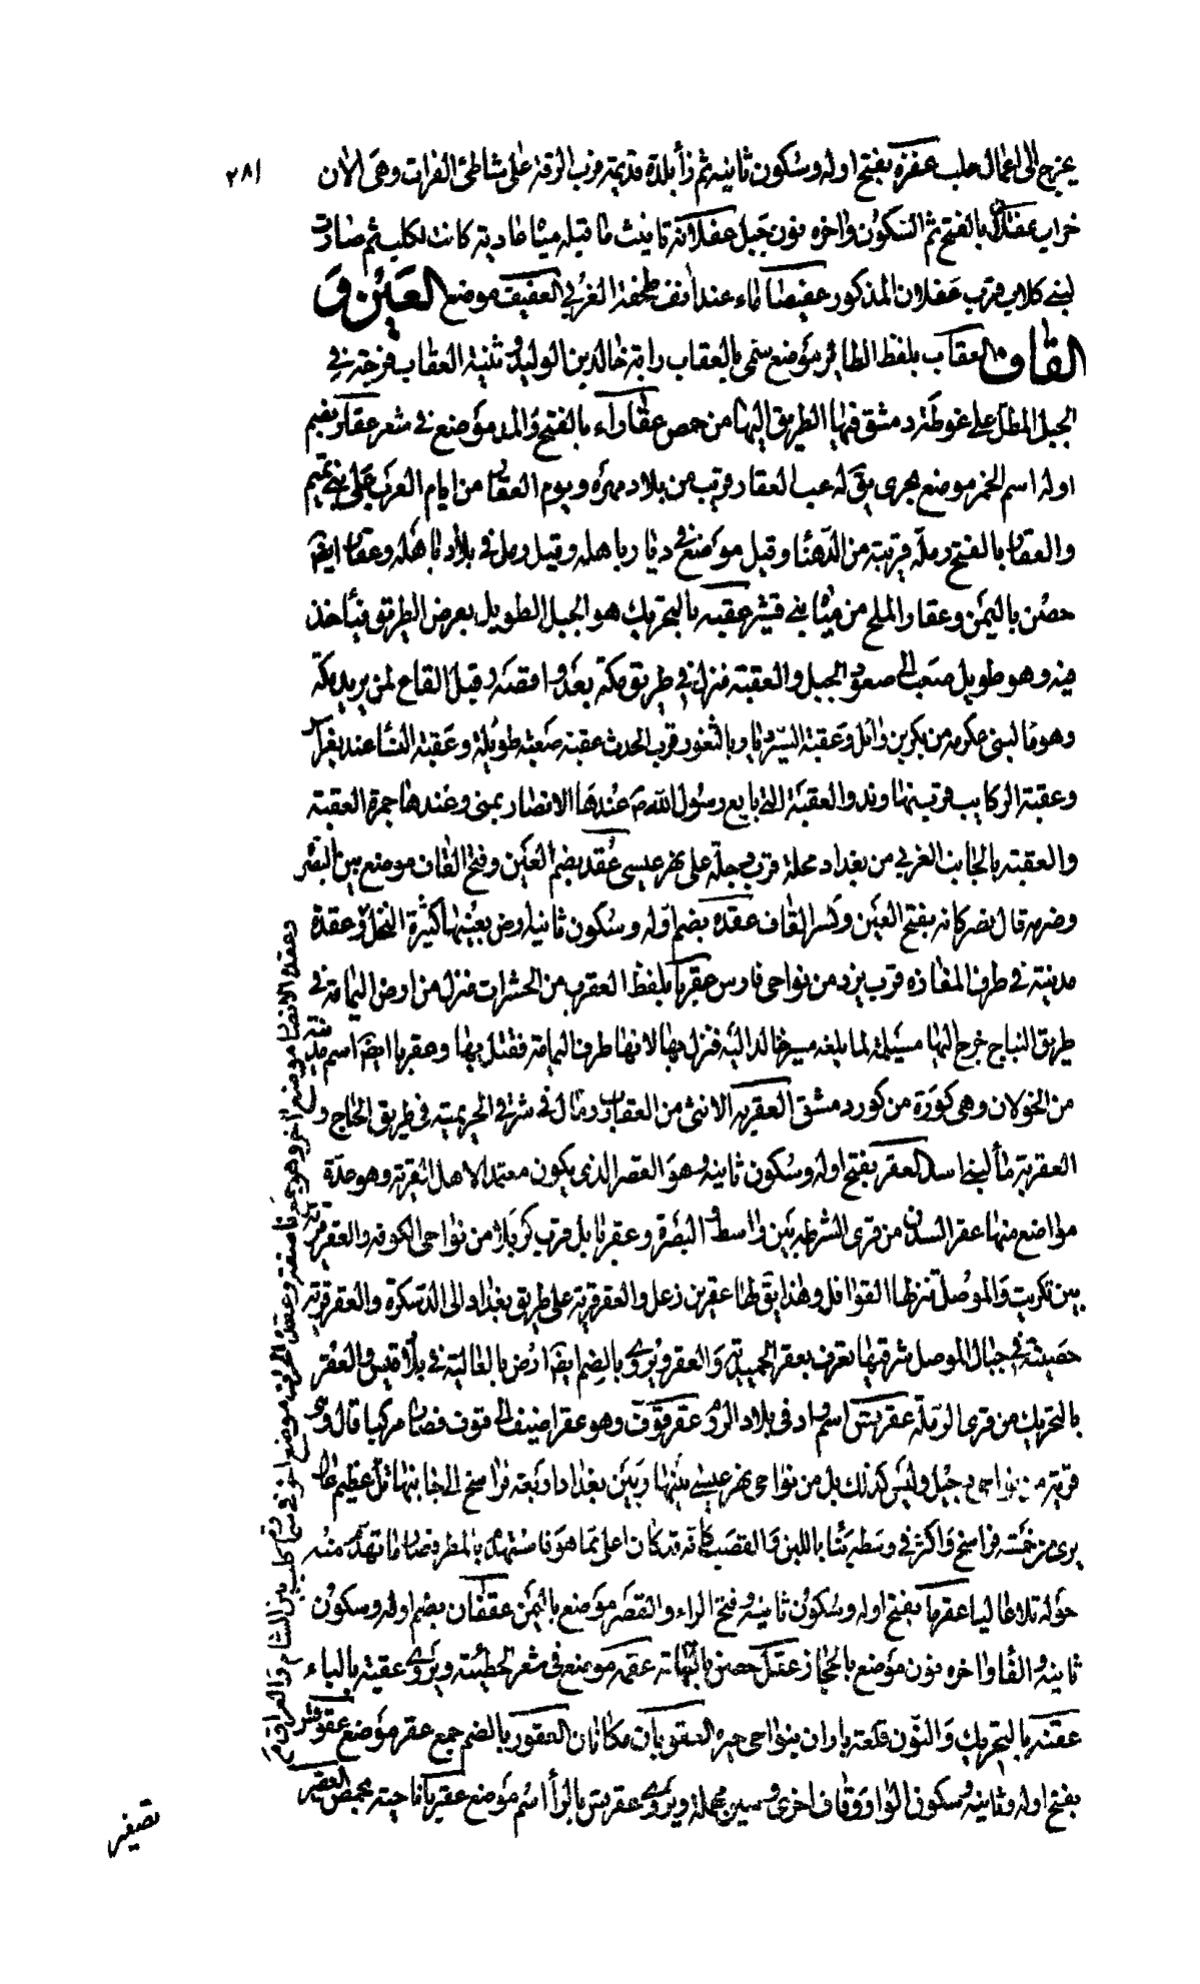 ٢٨١
يخرج الى اعمال حلب عفزه بفتح اوله وسكون ثانيه ثم زأ بلدة قديمة قرب الرقة على شاطئ الفرات وهى الان
خراب عفلان بالفتح ثم السكون واخره نون جبل عفلانة تانيث ما قبله ميٓاء عادية كانت لكلب ثم صارت
لبنى كلاب قرب عفلان المذكور عفيصا ماء عند انف طخفة الغربى العفيف موضع العين و
القاف العقاب بلفظ الطائر موضع سمى بالعقاب راية خالد بن الوليد وثنية العقاب فرجة فى
الجبل المطل على غوطة دمشق فيها الطريق اليها من حمص عقاراء بالفتح والمد موضع فى شعر عقار بضم
اوله اسم الخمر موضع بحرى يق له غب العقار قريب من بلاد مهره ويوم العقار من ايام العرب على بنى تميم
والعقار بالفتح رملة قريبة من الدهنا وقيل موضع فى ديار باهله وقيل رمل فى بلاد باهله وعقار ايضا
حصن باليمن وعقار الملح من مياه بنى قشير عقبه بالتحريك هو الجبل الطويل يعرض الطريق فياخذ
فيه وهو طويل صعب الى صعود الجبل والعقبة منزل فى طريق مكة بعد واقصه وقبل القاع لمن يريد مكة
وهو ماء لبنى عكرمه من بكر بن وائل وعقبة السير وبالثغور قرب الحدث عقبة ضيقة طويلة وعقبة النسا عند بغراس
وعقبة الركاب قرب نهاوند والعقبة التى بايع رسول الله ص عندها الانصار بمنى وعندها جمرة العقبة
والعقبة بالجانب الغربى من بغداد محلة قرب دجلة على نهر عيسى عقد بضم العين وفتح القاف موضع بين البصرة
وضريه قال نصر كانه بفتح العين وكسر القاف عقده بضم اوله وسكون ثانيه ارض بعينها كثيرة النخل وعقدة
مدينة فى طرف المفازه قرب يزد من نواحى فارس عقربا بلفظ العقرب من الحشرات منزل من ارض اليمامة فى
طريق النباج خرج اليها مسيلمة لما بلغه مسير خالد اليه فنزل بها لانها طرف اليمامة فقتل بها وعقربا ايضا اسم مدينة
من الجولان وهى كورة من كور دمشق العقربه الانثى من العقارب رمال فى شرقى الخزيمية فى طريق الحاج و
العقربة ماء لبنى اسد العقر بفتح اوله وسكون ثانيه وهو القصر الذى يكون معتمدا لاهل القرية وهو عدة
مواضع منها عقر السدن من قرى الشرطه بين واسط والبصرة وعقر بابل قرب كربلا من نواحى الكوفه والعقر قرية
بين تكريت والموصل تنزلها القوافل وهذا يق لها عقر بن زعل والعقر قرية على طريق بغداد الى الدسكرة والعقر قرية
حصينة فى جبال الموصل شرقيها تعرف بعقر الحميدية والعقر ويروى بالضم ايضا ارض بالعالية فى بلاد قيس والعقر
بالتحريك من قرى الرملة عقربس اسم واد فى بلاد الروم عقرقوف وهو عقر اضيف الى قوف فصار مركبا قال وهى
قرية من نواحى دجيل وليس كذلك بل من نواحى نهر عيسى بينها وبين بغداد اربعة فراسخ الى جانبها تل عظيم عال
يرى من خمسة فراسخ واكثر فى وسطه بنا باللبن والقصب كانه قد كان اعلى مما هو فاستهدم بالمطر فصار ما تهدم منه
حوله تلا عاليا عقرما بفتح اوله وسكون ثانيه وفتح الراء والقصر موضع باليمن عقفان بضم اوله وسكون
ثانيه والفا واخره نون موضع بالحجاز عقل حصن بتهامة عقمه موضع فى شعر الحطيئة ويروى عقية بالياء
عقنه بالتحريك والنون قلعة باران بنواحى جنزه العقوبان مكانان العقور بالضم جمع عقر موضع عقوقس
بفتح اوله وثانيه وسكون الواو وقاف اخرى وسين مهملة ويروى عقربس بالرأ اسم موضع عقيربا ناحية بحمص العقير
وعقدة الانصار موضع اخر وهو
بين الشام والعراق
تصغير